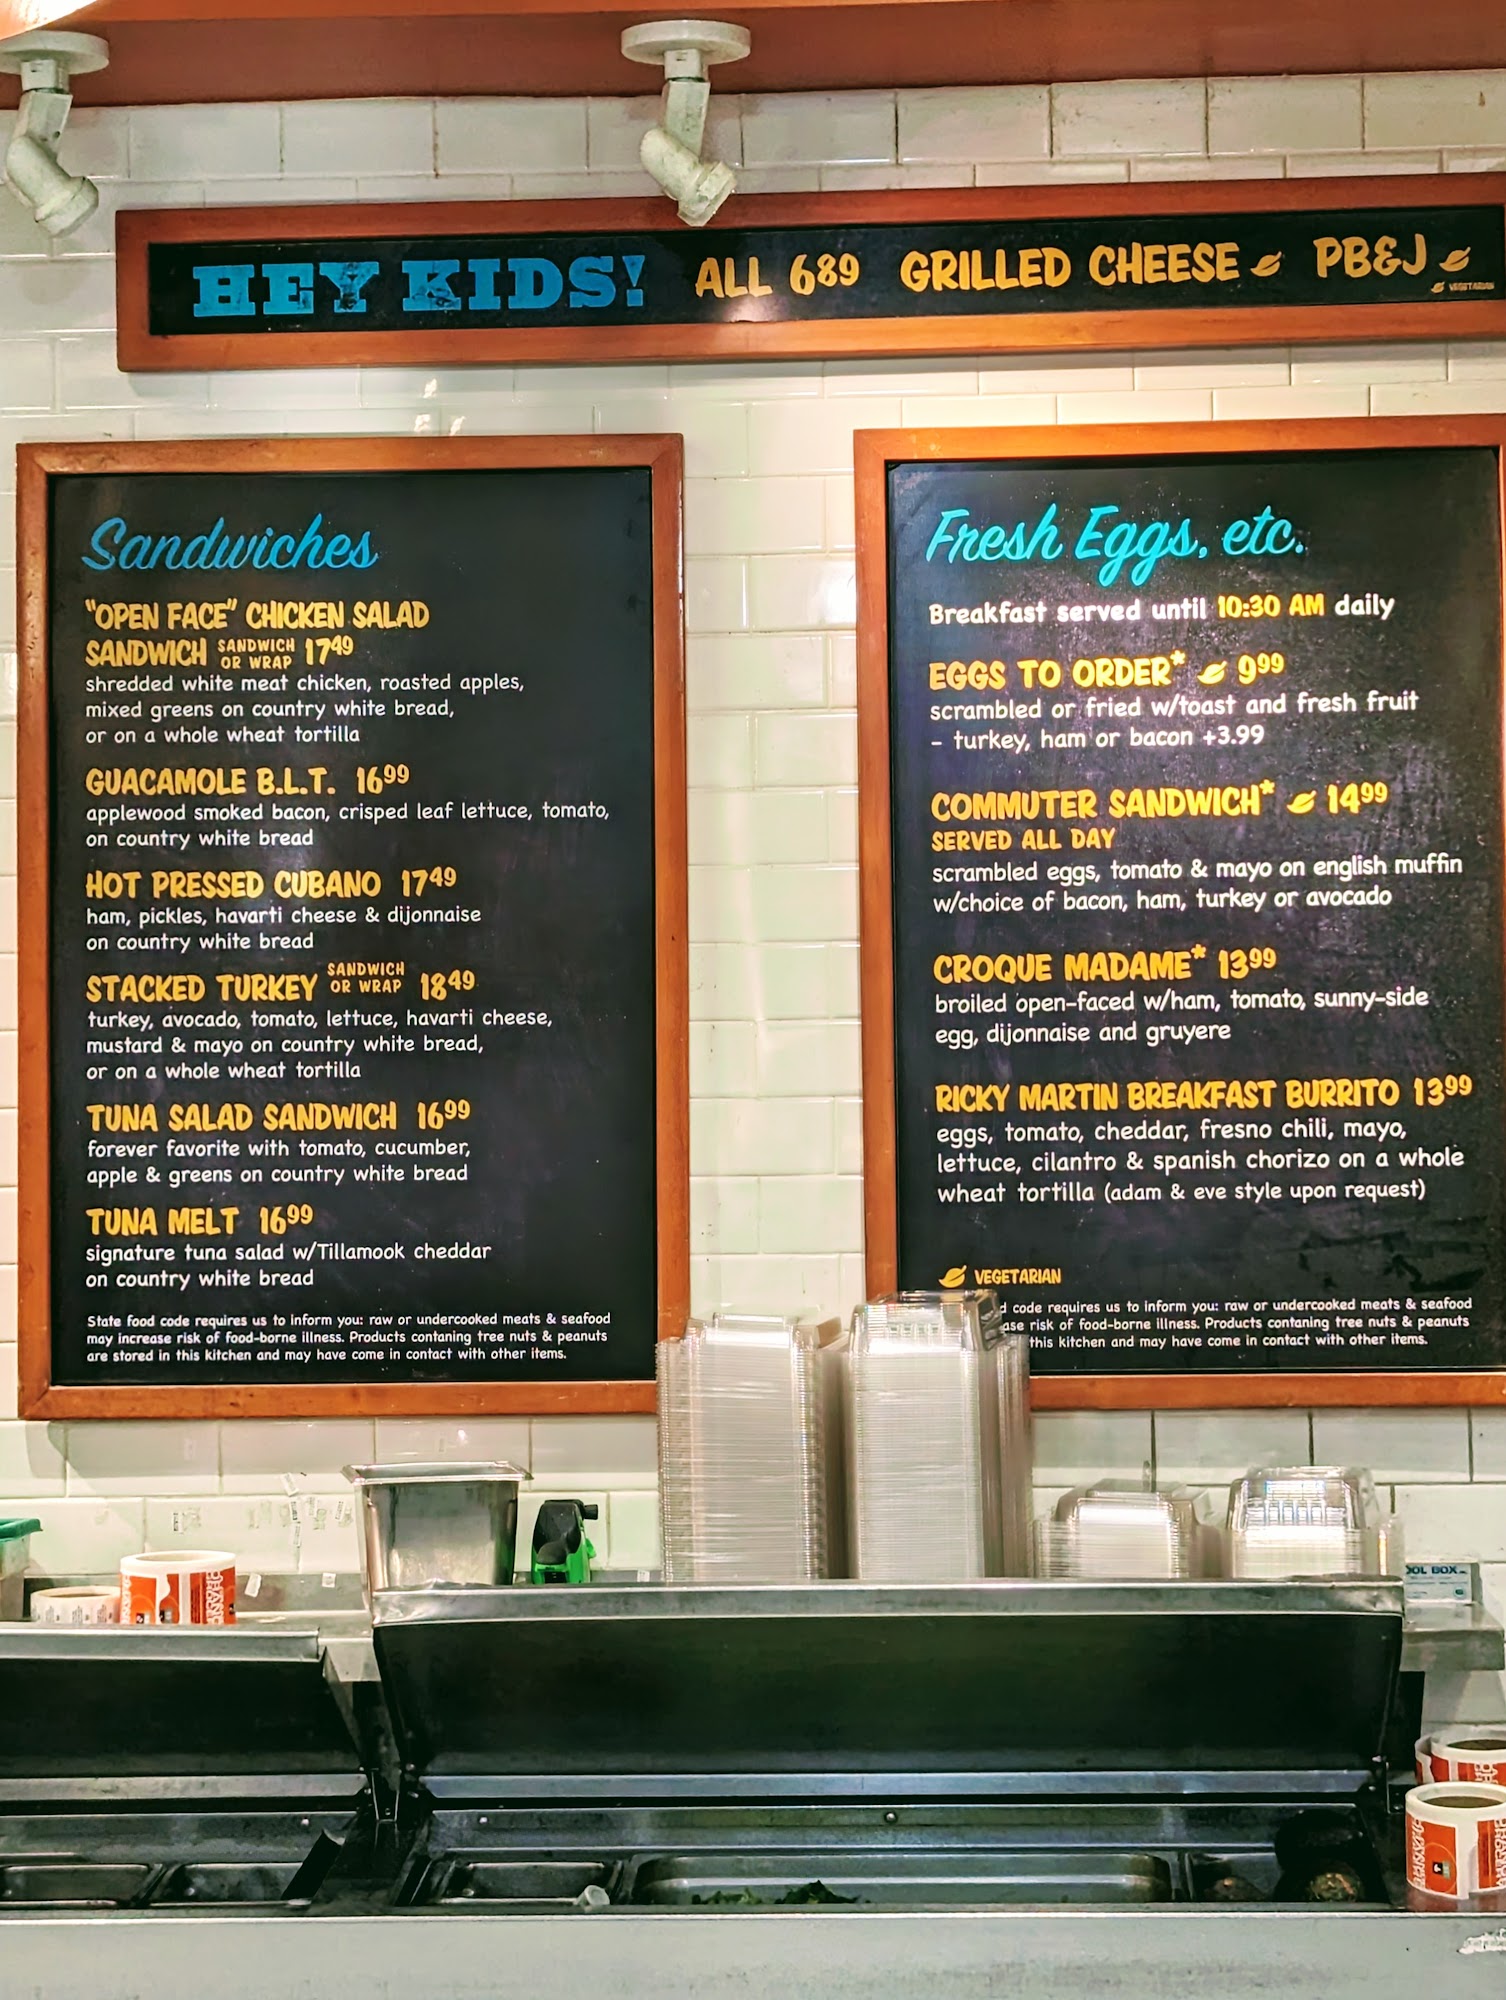 HEY KIDS! ALL 689 GRILLED CHEESE PB&J
VEGETARIAN
Sandwiches
"OPEN FACE" CHICKEN SALAD
SANDWICH SANDWICH OR WRAP 1749
shredded white meat chicken, roasted apples,
mixed greens on country white bread,
or on a whole wheat tortilla
GUACAMOLE B.L.T. 1699
applewood smoked bacon, crisped leaf lettuce, tomato,
on country white bread
HOT PRESSED CUBANO 1749
ham, pickles, havarti cheese & dijonnaise
on country white bread
STACKED TURKEY SANDWICH OR WRAP 1849
turkey, avocado, tomato, lettuce, havarti cheese,
mustard & mayo on country white bread,
or on a whole wheat tortilla
TUNA SALAD SANDWICH 1699
forever favorite with tomato, cucumber,
apple & greens on country white bread
TUNA MELT 1699
signature tuna salad w/Tillamook cheddar
on country white bread
State food code requires us to inform you: raw or undercooked meats & seafood
may increase risk of food-borne illness. Products contaning tree nuts & peanuts
are stored in this kitchen and may have come in contact with other items.
Fresh Eggs, etc.
Breakfast served until 10:30 AM daily
EGGS TO ORDER* 999
scrambled or fried w/toast and fresh fruit
- turkey, ham or bacon +3.99
COMMUTER SANDWICH* 1499
SERVED ALL DAY
scrambled eggs, tomato & mayo on english muffin
w/choice of bacon, ham, turkey or avocado
CROQUE MADAME* 1399
broiled open-faced w/ham, tomato, sunny-side
egg, dijonnaise and gruyere
RICKY MARTIN BREAKFAST BURRITO 1399
eggs, tomato, cheddar, fresno chili, mayo,
lettuce, cilantro & spanish chorizo on a whole
wheat tortilla (adam & eve style upon request)
VEGETARIAN
code requires us to inform you: raw or undercooked meats & seafood
risk of food-borne illness. Products contaning tree nuts & peanuts
this kitchen and may have come in contact with other items.
BOX